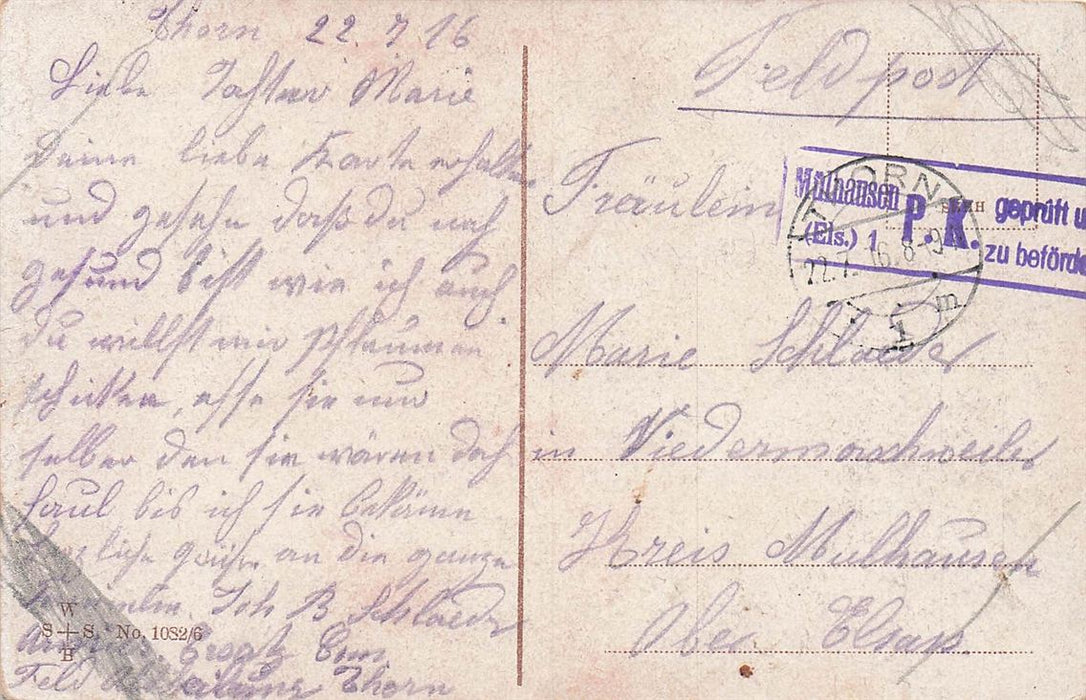 Thorn 22.7.16
Liebe Tochter Marie
Deine liebe Karte erhalten
und gesehn daß du noch
gesund bist wie ich auch
du willst mir Pflaumen
schicken, esse sie nur
selber den sie wären doch
faul bis ich sie bekäme
herzliche grüße an die ganze
Joh B Schlaeder
Ersatz
Feld Thorn
W
S + S. No. 1082/6
B
Feldpost
Fräulein
Marie Schlaeder
in Niedermorschweiler
Kreis Mulhausen
Ober Elsaß
Mülhausen P.K. geprüft u
(Els.) 1 zu beförde
THORN
22.7.16.8-9
1 m